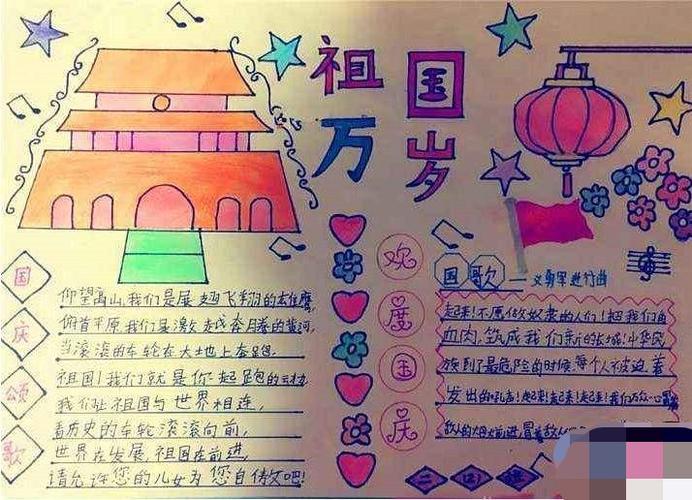 祖国
万岁
国庆颂歌
仰望高山,我们是展翅飞翔的雄鹰,
俯首平原我们是激越奔腾的黄河,
当滚滚的车轮在大地上奔跑
祖国!我们就是你起跑的
我们让祖国与世界相连,
看历史的车轮滚滚向前,
世界在发展,祖国在前进,
请允许您的儿女为您自传欢吧!
欢度国庆
国歌—义勇军进行曲
起来!不愿做奴隶的人们!把我们的
血肉,筑成我们新的长城!中华民
族到了最危险的时候,每个人被迫着
发出的吼声!起来!起来!起来!我们万众一心
敌人的炮火前进,冒着敌人
二(2)班